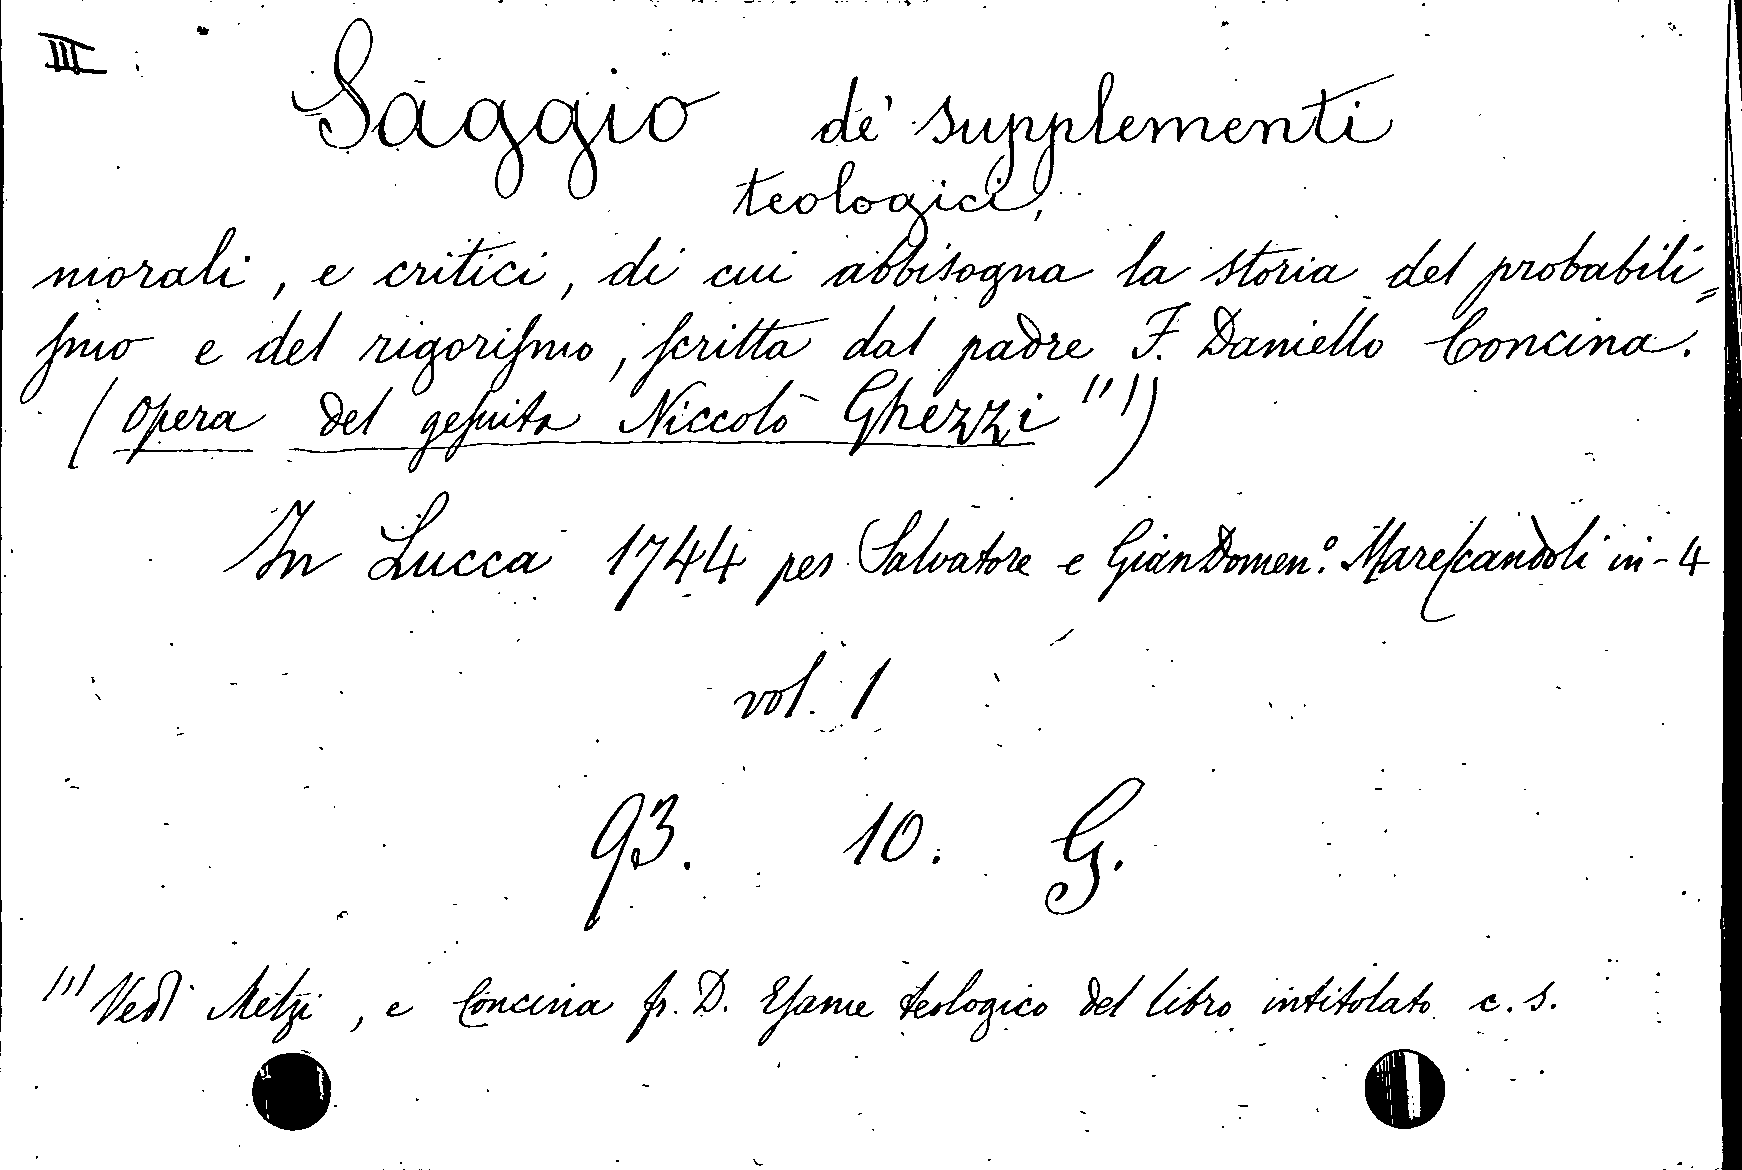 III
Saggio de' supplementi
teologici,
morali, e critici, di cui abbisogna la storia del probabili=
ſmo e del rigoriſmo, ſcritta dal padre F. Daniello Concina.
(opera del geſuita Niccolò Ghezzi (1))
In Lucca 1744 per Salvatore e GianDomen.º Mareſcandoli in-4
vol. 1
93. 10. G.
(1) Vedi Melzi, e Concina fr. D. Eſame teologico del libro intitolato c. s.